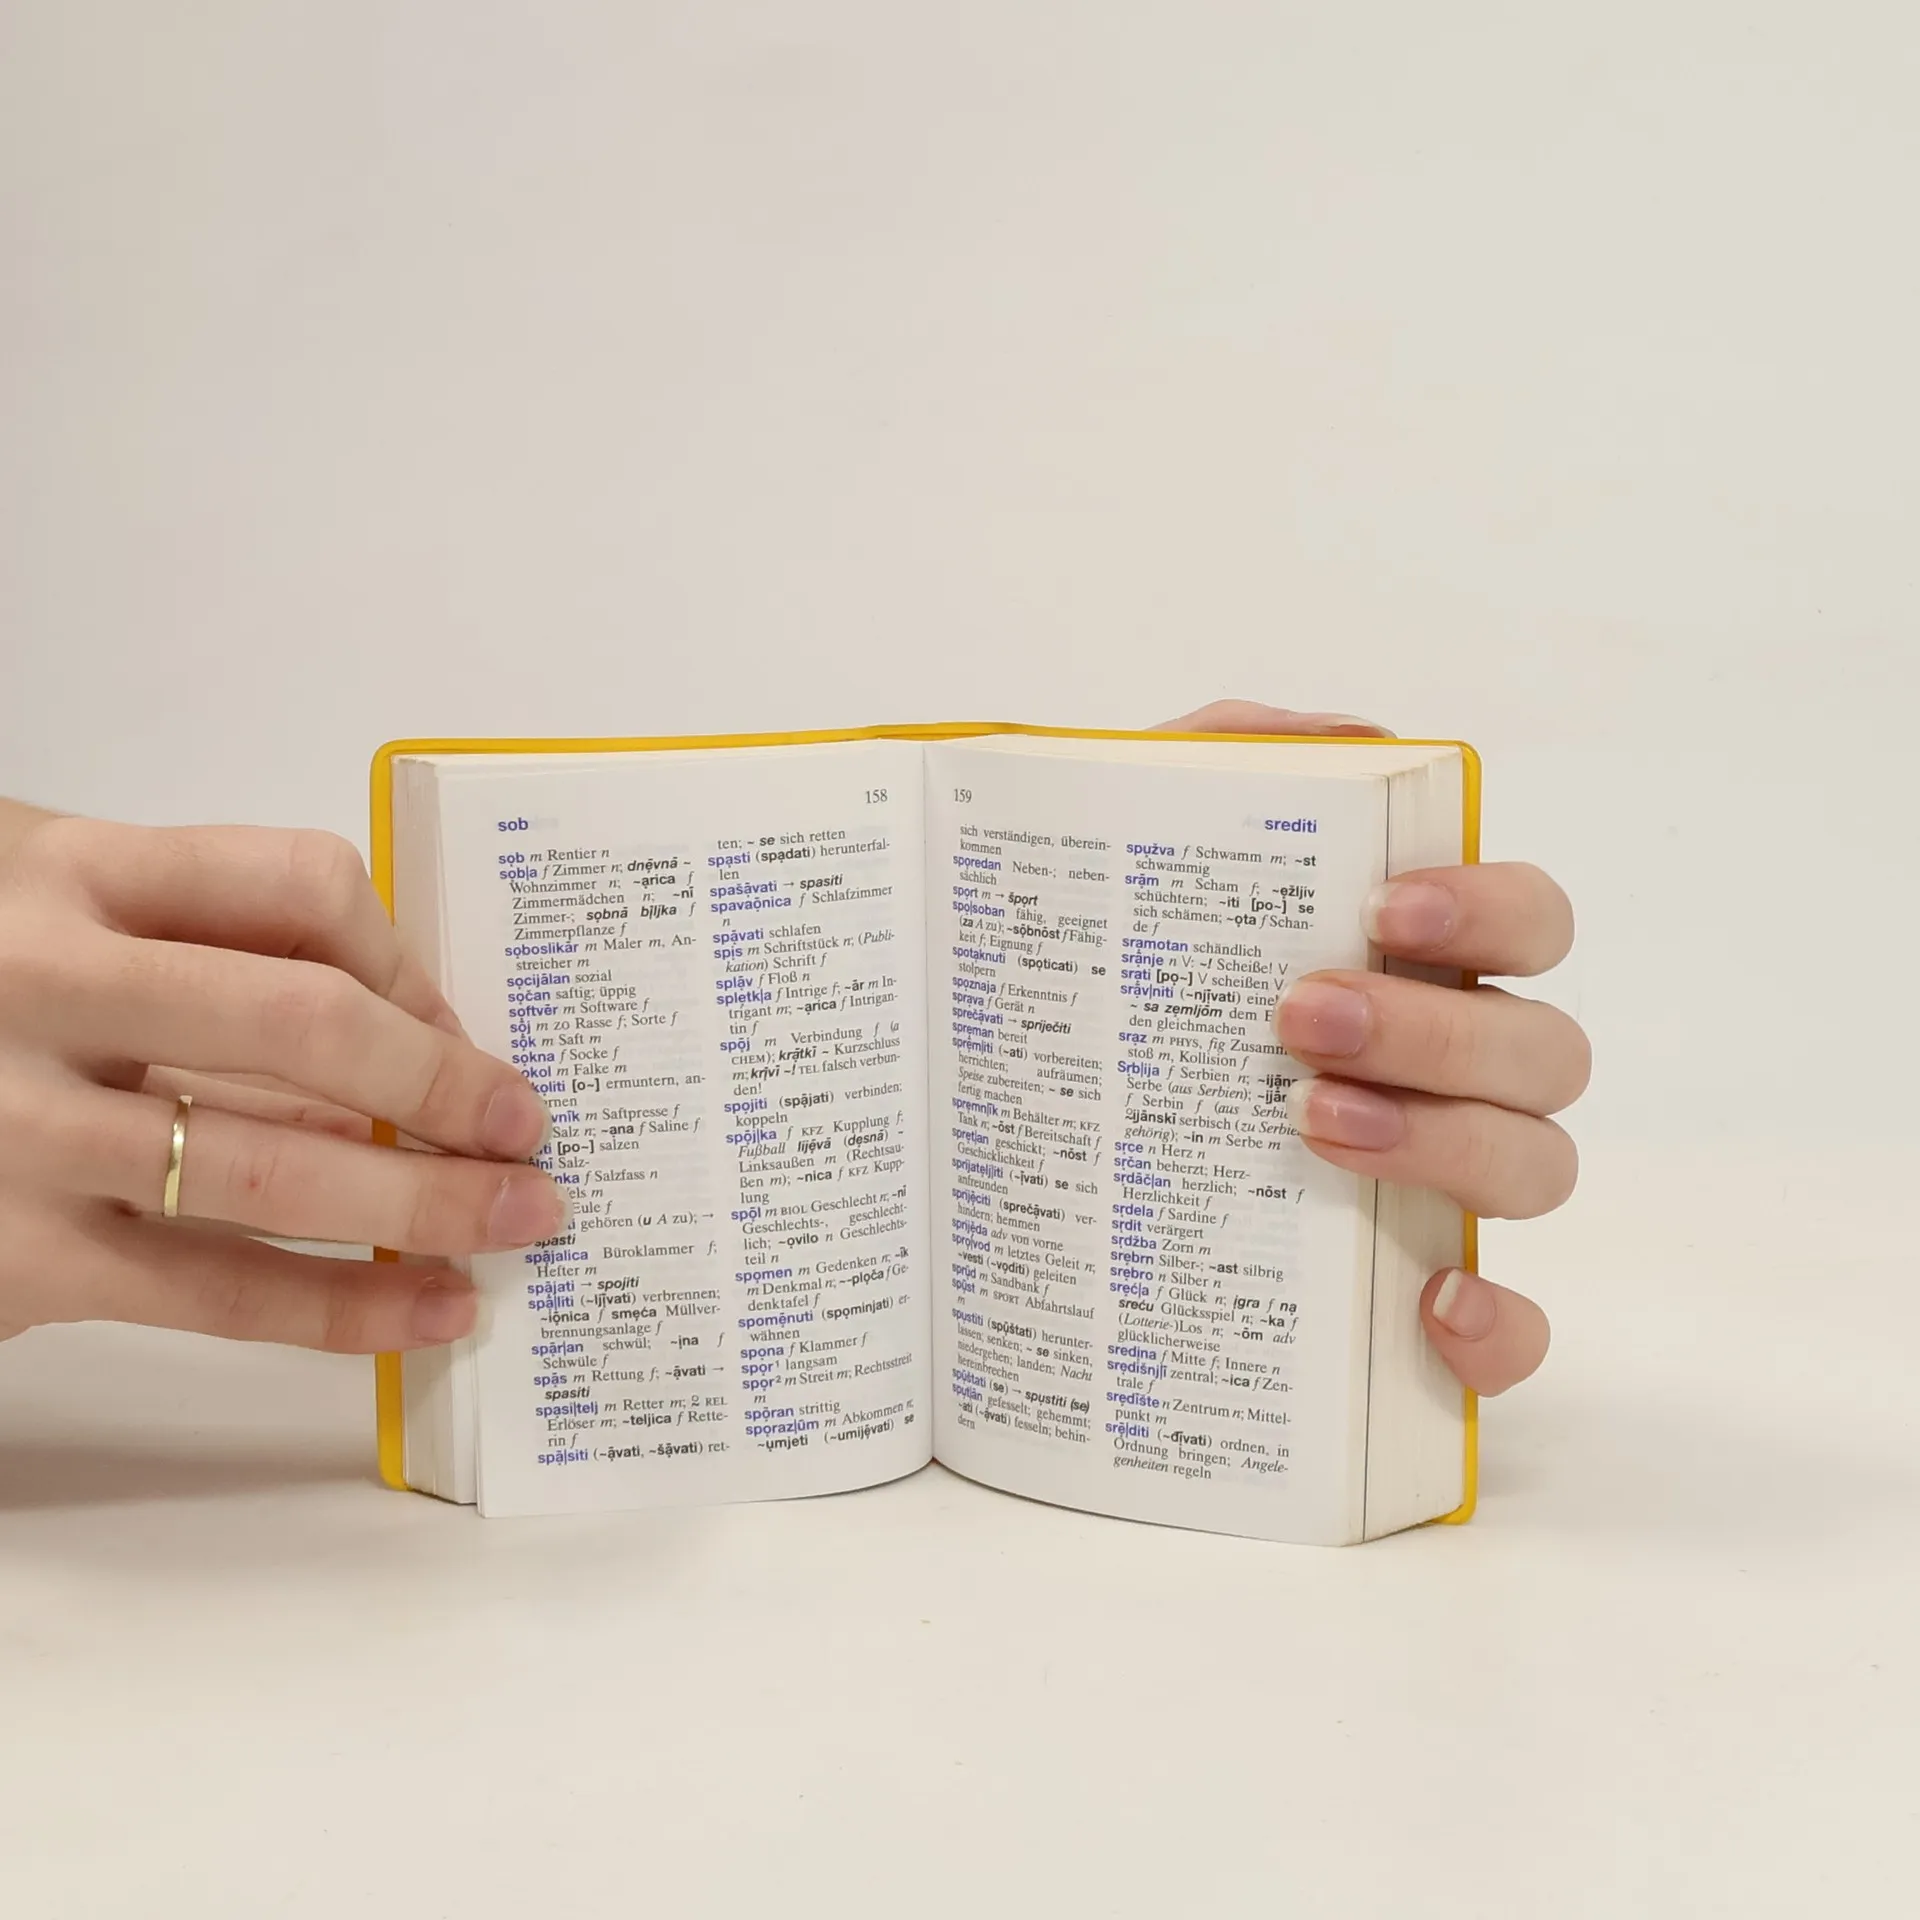 158
sob
sob m Rentier n
sob|a f Zimmer n; dnevna ~
Wohnzimmer n; ~arica f
Zimmermädchen n; ~nī
Zimmer-; sobnā biljka f
Zimmerpflanze f
soboslikār m Maler m, An-
streicher m
socijālan sozial
sočan saftig; üppig
softvēr m Software f
sōj m ZO Rasse f; Sorte f
sōk m Saft m
sokna f Socke f
okol m Falke m
koliti [o~] ermuntern, an-
ernen
vnīk m Saftpresse f
Salz n; ~ana f Saline f
ti [po~] salzen
lnī Salz-
nka f Salzfass n
els m
Eule f
i gehören (u A zu); →
spasti
spājalica Büroklammer f;
Hefter m
spājati → spojiti
spā|liti (~ljīvati) verbrennen;
~iōnica f smeća Müllver-
brennungsanlage f
spār|an schwül; ~ina f
Schwüle f
spās m Rettung f; ~āvati →
spasiti
spasi|telj m Retter m; 2 REL
Erlöser m; ~teljica f Rette-
rin f
spā|siti (~āvati, ~šāvati) ret-
ten; ~ se sich retten
spasti (spadati) herunterfal-
len
spašāvati → spasiti
spavaōnica f Schlafzimmer
n
spāvati schlafen
spis m Schriftstück n; (Publi-
kation) Schrift f
splāv f Floß n
spletk|a f Intrige f; ~ār m In-
trigant m; ~arica f Intrigan-
tin f
spōj m Verbindung f (a
CHEM); krātkī ~ Kurzschluss
m; krīvī ~! TEL falsch verbun-
den!
spojiti (spājati) verbinden;
koppeln
spōj|ka f KFZ Kupplung f;
Fußball lijēvā (desnā) ~
Linksaußen m (Rechtsau-
ßen m); ~nica f KFZ Kupp-
lung
spōl m BIOL Geschlecht n; ~nī
Geschlechts-, geschlecht-
lich; ~ovilo n Geschlechts-
teil n
spomen m Gedenken n; ~īk
m Denkmal n; ~-ploča f Ge-
denktafel f
spomēnuti (spominjati) er-
wähnen
spona f Klammer f
spor¹ langsam
spor² m Streit m; Rechtsstreit
m
spōran strittig
sporaz|ūm m Abkommen n;
~umjeti (~umijēvati) se
159
srediti
sich verständigen, überein-
kommen
sporedan Neben-; neben-
sächlich
sport m → šport
spo|soban fähig, geeignet
(za A zu); ~sōbnōst f Fähig-
keit f; Eignung f
spotaknuti (spoticati) se
stolpern
spoznaja f Erkenntnis f
sprava f Gerät n
sprečāvati → spriječiti
spreman bereit
sprēm|iti (~ati) vorbereiten;
herrichten; aufräumen;
Speise zubereiten; ~ se sich
fertig machen
spremn|īk m Behälter m; KFZ
Tank n; ~ōst f Bereitschaft f
spret|an geschickt; ~nōst f
Geschicklichkeit f
sprijatelj|iti (~īvati) se sich
anfreunden
spriječiti (sprečāvati) ver-
hindern; hemmen
sprijēda adv von vorne
spro|vod m letztes Geleit n;
~vesti (~voditi) geleiten
sprūd m Sandbank f
spūst m SPORT Abfahrtslauf
m
spustiti (spūštati) herunter-
lassen; senken; ~ se sinken,
niedergehen; landen; Nacht
hereinbrechen
spūštati (se) → spustiti (se)
sputān gefesselt; gehemmt;
~ati (~āvati) fesseln; behin-
dern
spužva f Schwamm m; ~st
schwammig
srām m Scham f; ~ežljiv
schüchtern; ~iti [po~] se
sich schämen; ~ota f Schan-
de f
sramotan schändlich
srānje n V: ~! Scheiße! V
srati [po~] V scheißen V
srāv|niti (~njīvati) eine
~ sa zemljōm dem E
den gleichmachen
sraz m PHYS, fig Zusamm
stoß m, Kollision f
Srb|ija f Serbien n; ~ijān
Serbe (aus Serbien); ~ijān
f Serbin f (aus Serbie
2ijānskī serbisch (zu Serbie
gehörig); ~in m Serbe m
srce n Herz n
srčan beherzt; Herz-
srdāč|an herzlich; ~nōst f
Herzlichkeit f
srdela f Sardine f
srdit verärgert
srdžba Zorn m
srebrn Silber-; ~ast silbrig
srebro n Silber n
sreć|a f Glück n; igra f na
sreću Glücksspiel n; ~ka f
(Lotterie-)Los n; ~ōm adv
glücklicherweise
sredina f Mitte f; Innere n
središnj|ī zentral; ~ica f Zen-
trale f
središte n Zentrum n; Mittel-
punkt m
srē|diti (~đīvati) ordnen, in
Ordnung bringen; Angele-
genheiten regeln